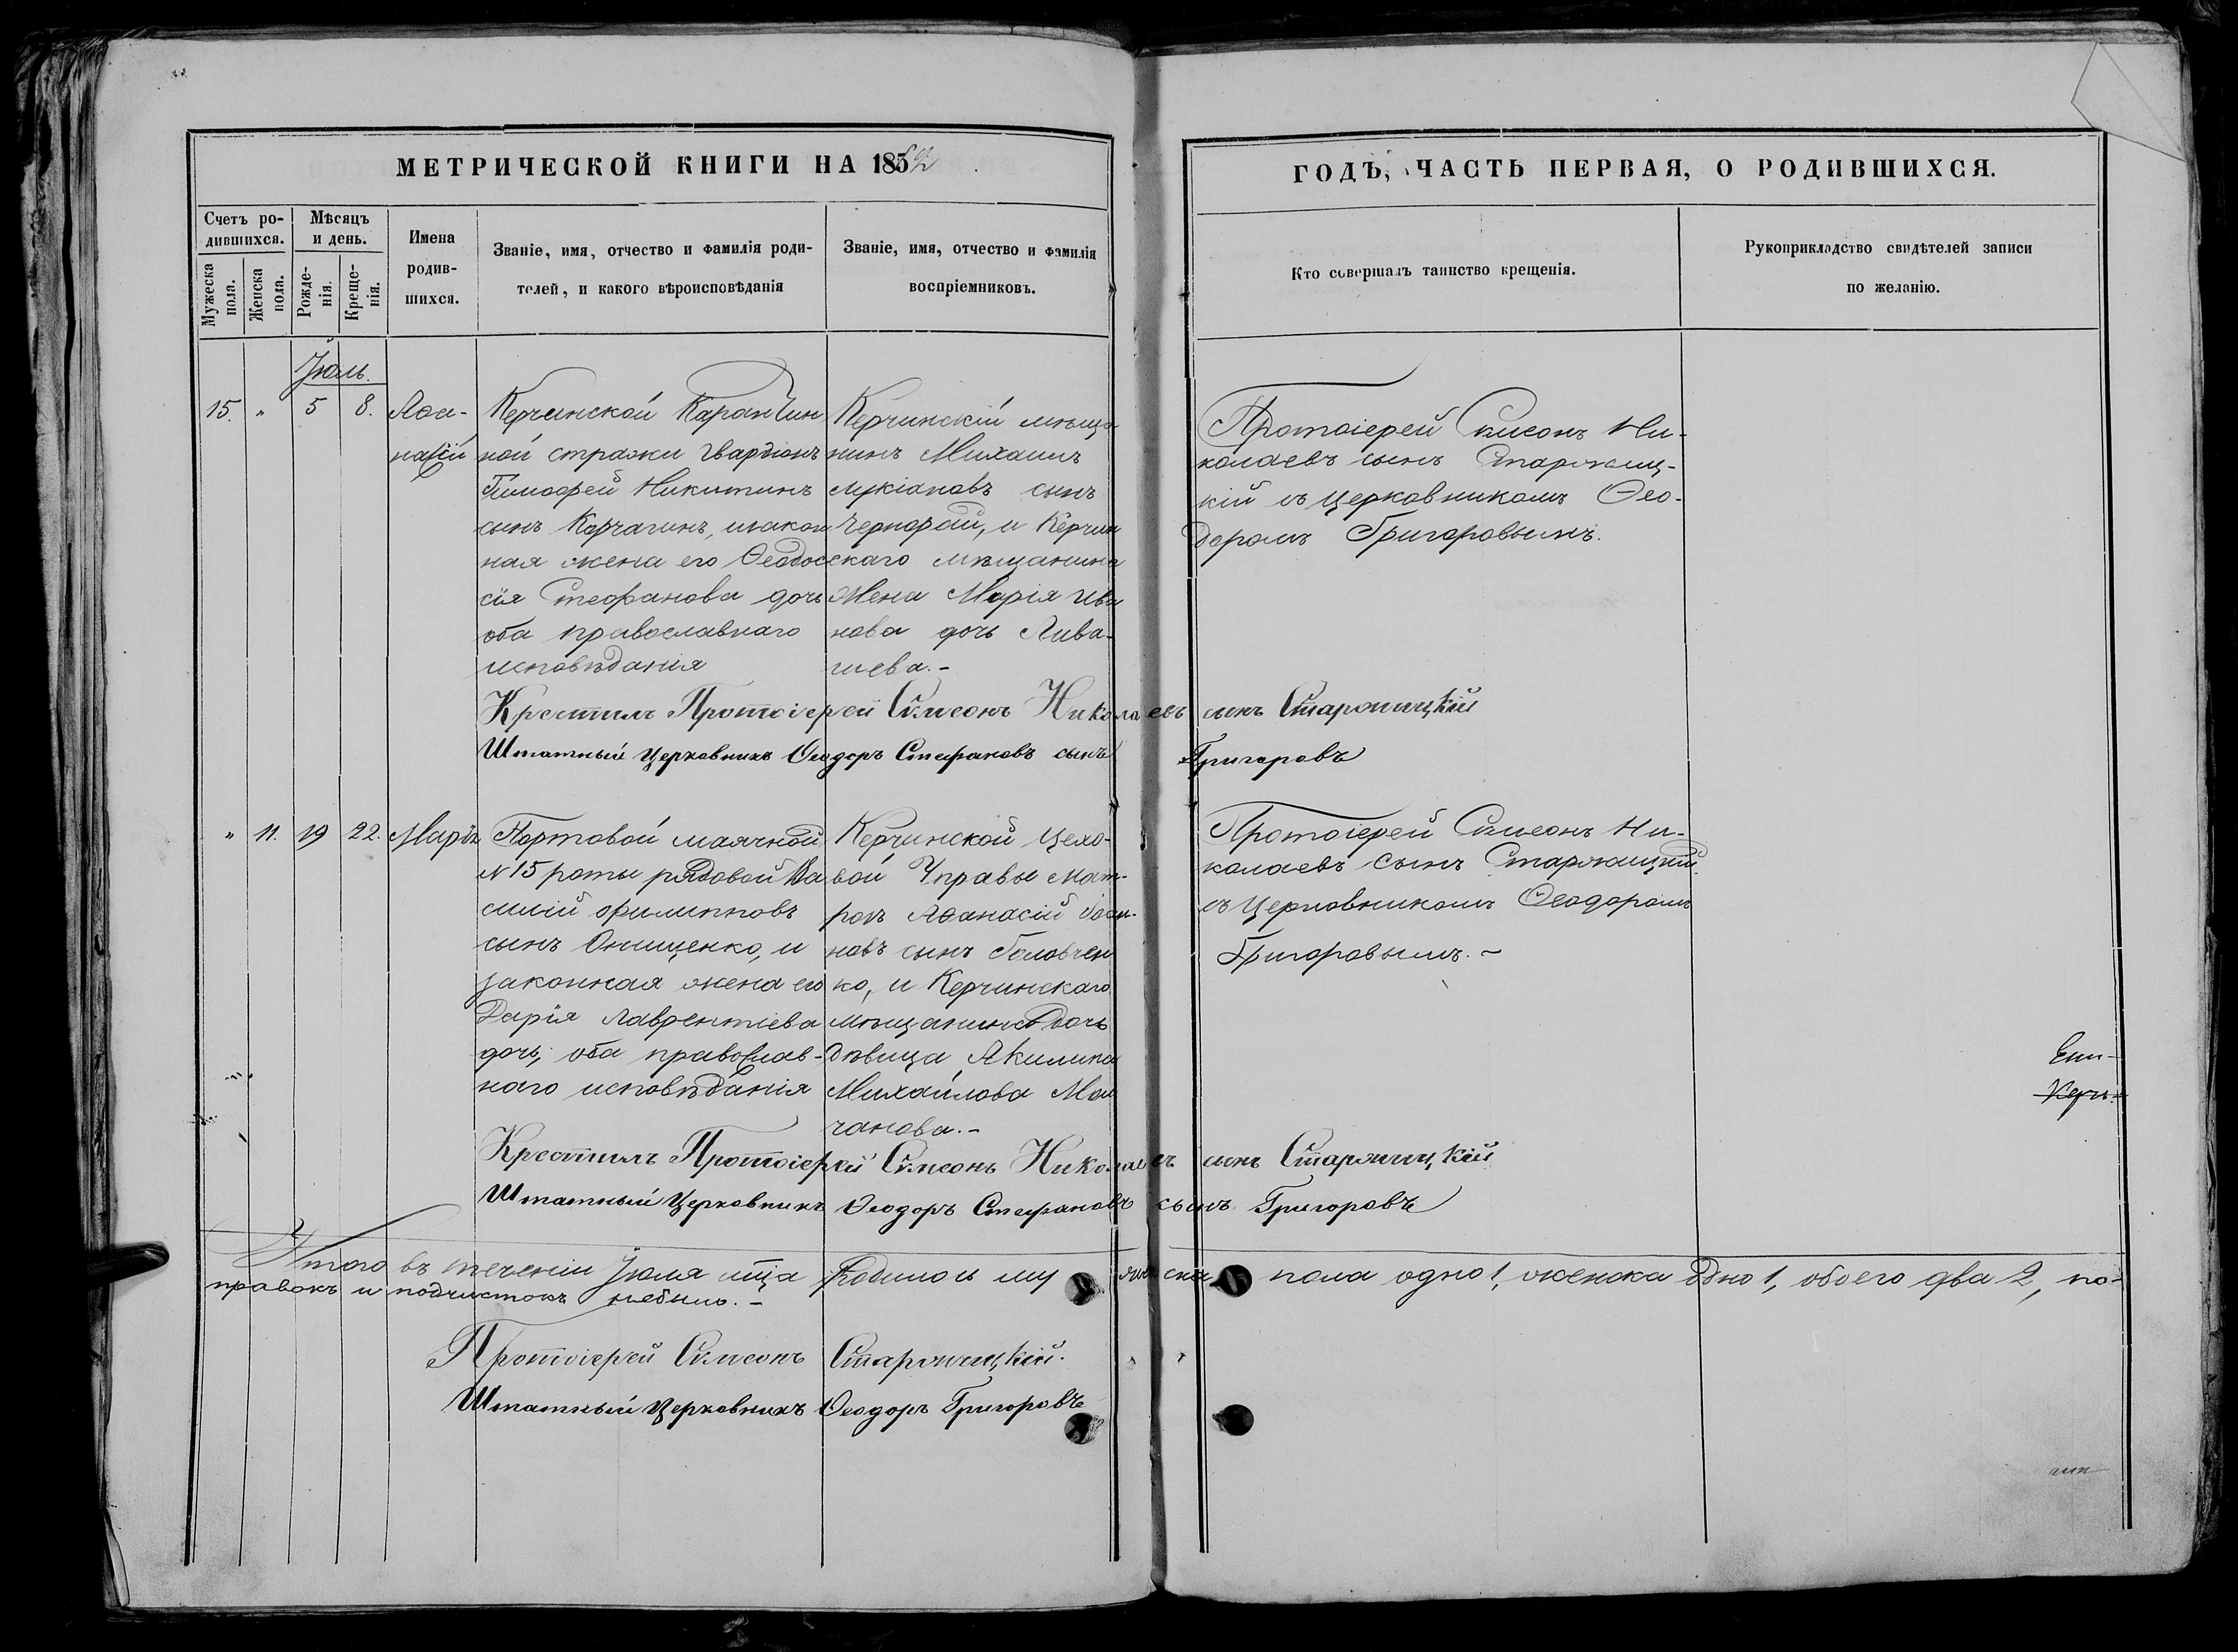 МЕТРИЧЕСКОЙ КНИГИ НА 185
ГОДЪ, ЧАСТЬ ПЕРВАЯ, О РОДИВШИХСЯ.
Счетъ ро-
дившихся.
Мужеска
пола.
Женска
пола.
Мѣсяцъ
и день.
Рожде-
нія.
Креще-
нія.
Имена
родив-
шихся.
Званіе, имя, отчество и фамилія роди-
телей, и какого вѣроисповѣданія
Званіе, имя, отчество и фамилія
воспріемниковъ.
Кто совершалъ таинство крещенія.
Рукоприкладство свидѣтелей записи
по желанію.
Іюль.
15. " 5 8.
Аѳа-
насій
Керчинской Карантин
ной стражи гвардіонъ
Тимофей Никитинъ
сынъ Корчагинъ, изакон
ная жена его Ѳеодос
сія Стефанова дочь
оба православнаго
исповѣданія
Керчинскій мѣща
нинъ Михаилъ
Лукіановъ сынъ
Чернорай, и Керчин
скаго мѣщанина
жена Марія Ива
нова дочь Лива-
шева.-
Протоіерей Симеонъ Ни-
колаевъ сынъ Старжиц-
кій съ церковникомъ Ѳео-
доромъ Григоровымъ.
Крестилъ Протоіерей Симеонъ Николаевъ сынъ Старжицкій
Штатный Церковникъ Ѳеодоръ Стефановъ сынъ Григоровъ
" 11. 19 22.
Марія
Портовой маячной
№15 роты рядовой Ва
силій Филипповъ
сынъ Онищенко, и
законная жена его
Дарія Лаврентіева
дочь, оба православ-
наго исповѣданія
Керчинской Цехо-
вой Управы Мат-
розъ Аѳанасій Іоан-
новъ сынъ Головчен
ко, и Керчинскаго
мѣщанина дочь
дѣвица Акилина
Михайлова Мол
чанова.-
Протоіерей Симеонъ Ни-
колаевъ сынъ Старжицкій
съ Церковникомъ Ѳеодоромъ
Григоровымъ.-
Ени-
Керч.
Крестилъ Протоіерей Симеонъ Николаевъ сынъ Старжицкій
Штатный Церковникъ Ѳеодоръ Стефановъ сынъ Григоровъ
Итого въ теченіи Іюля мца родилось мужеска пола одно 1, женска одно 1, обоего два 2, по-
правокъ и подчистокъ небыло.-
Протоіерей Симеонъ Старжицкій.
Штатный Церковникъ Ѳеодоръ Григоровъ